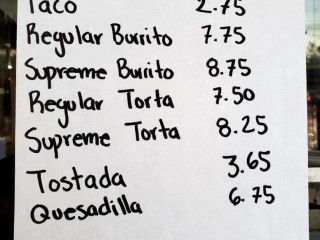 Taco 2.75
Regular Burrito 7.75
Supreme Burrito 8.75
Regular Torta 7.50
Supreme Torta 8.25
Tostada 3.65
Quesadilla 6.75